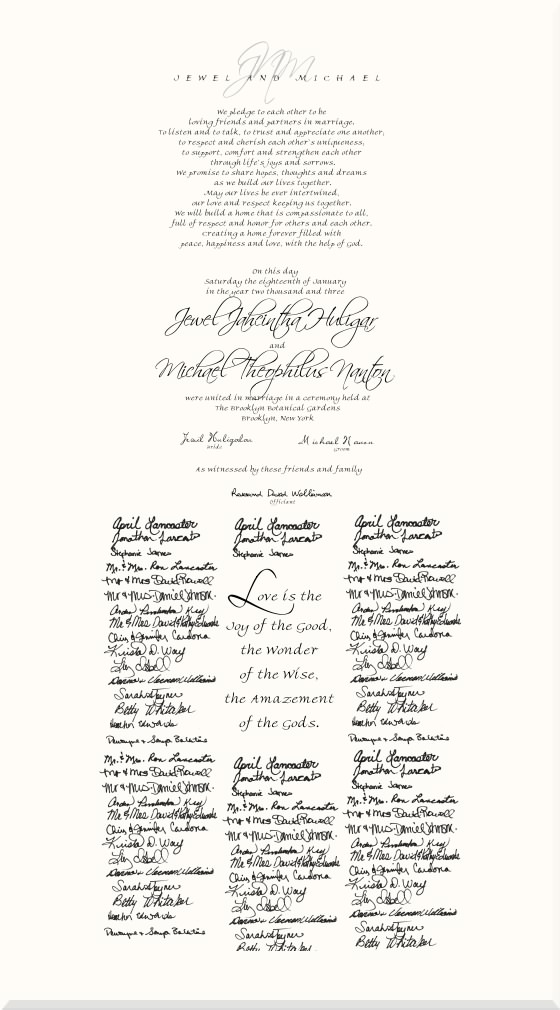 JNM
JEWEL AND MICHAEL
We pledge to each other to be
loving friends and partners in marriage,
To listen and to talk, to trust and appreciate one another,
to respect and cherish each other's uniqueness,
to support, comfort and strengthen each other
through life's joys and sorrows.
We promise to share hopes, thoughts and dreams
as we build our lives together.
May our lives be ever intertwined,
our love and respect keeping us together.
We will build a home that is compassionate to all,
full of respect and honor for others and each other.
Creating a home forever filled with
peace, happiness and love, with the help of God.
On this day
Saturday the eighteenth of January
in the year two thousand and three
Jewel Jahcintha Huligar
and
Michael Theophilus Nanton
were united in marriage in a ceremony held at
The Brooklyn Botanical Gardens
Brooklyn, New York
Bride
Michael
Groom
As witnessed by these friends and family
David
Officiant
April Lancaster
Jonathan
Stephanie James
Mr. & Mrs. Ron Lancaster
Mr & Mrs David Powell
Mr & Mrs Daniel Johnson.
Mr & Mrs. David & Kathy Edwards
Chris & Jennifer Cardona
Krista D. Way
Sarah Joyner
Betty Whitaker
Edwards
Dewayne & Sonya
Mr. & Mrs. Ron Lancaster
Mr & Mrs David Powell
Mr & Mrs Daniel Johnson.
Mr & Mrs. David & Kathy Edwards
Chris & Jennifer Cardona
Krista D. Way
Sarah Joyner
Betty Whitaker
Edwards
Dewayne & Sonya
April Lancaster
Jonathan
Stephanie James
Love is the
Joy of the Good,
the Wonder
of the Wise,
the Amazement
of the Gods.
April Lancaster
Jonathan
Stephanie James
Mr. & Mrs. Ron Lancaster
Mr & Mrs David Powell
Mr & Mrs Daniel Johnson.
Mr & Mrs. David & Kathy Edwards
Chris & Jennifer Cardona
Krista D. Way
Sarah Joyner
Betty Whitaker
April Lancaster
Jonathan
Stephanie James
Mr. & Mrs. Ron Lancaster
Mr & Mrs David Powell
Mr & Mrs Daniel Johnson.
Mr & Mrs. David & Kathy Edwards
Chris & Jennifer Cardona
Krista D. Way
Sarah Joyner
Betty Whitaker
Edwards
Dewayne & Sonya
April Lancaster
Jonathan
Stephanie James
Mr. & Mrs. Ron Lancaster
Mr & Mrs David Powell
Mr & Mrs Daniel Johnson.
Mr & Mrs. David & Kathy Edwards
Chris & Jennifer Cardona
Krista D. Way
Sarah Joyner
Betty Whitaker